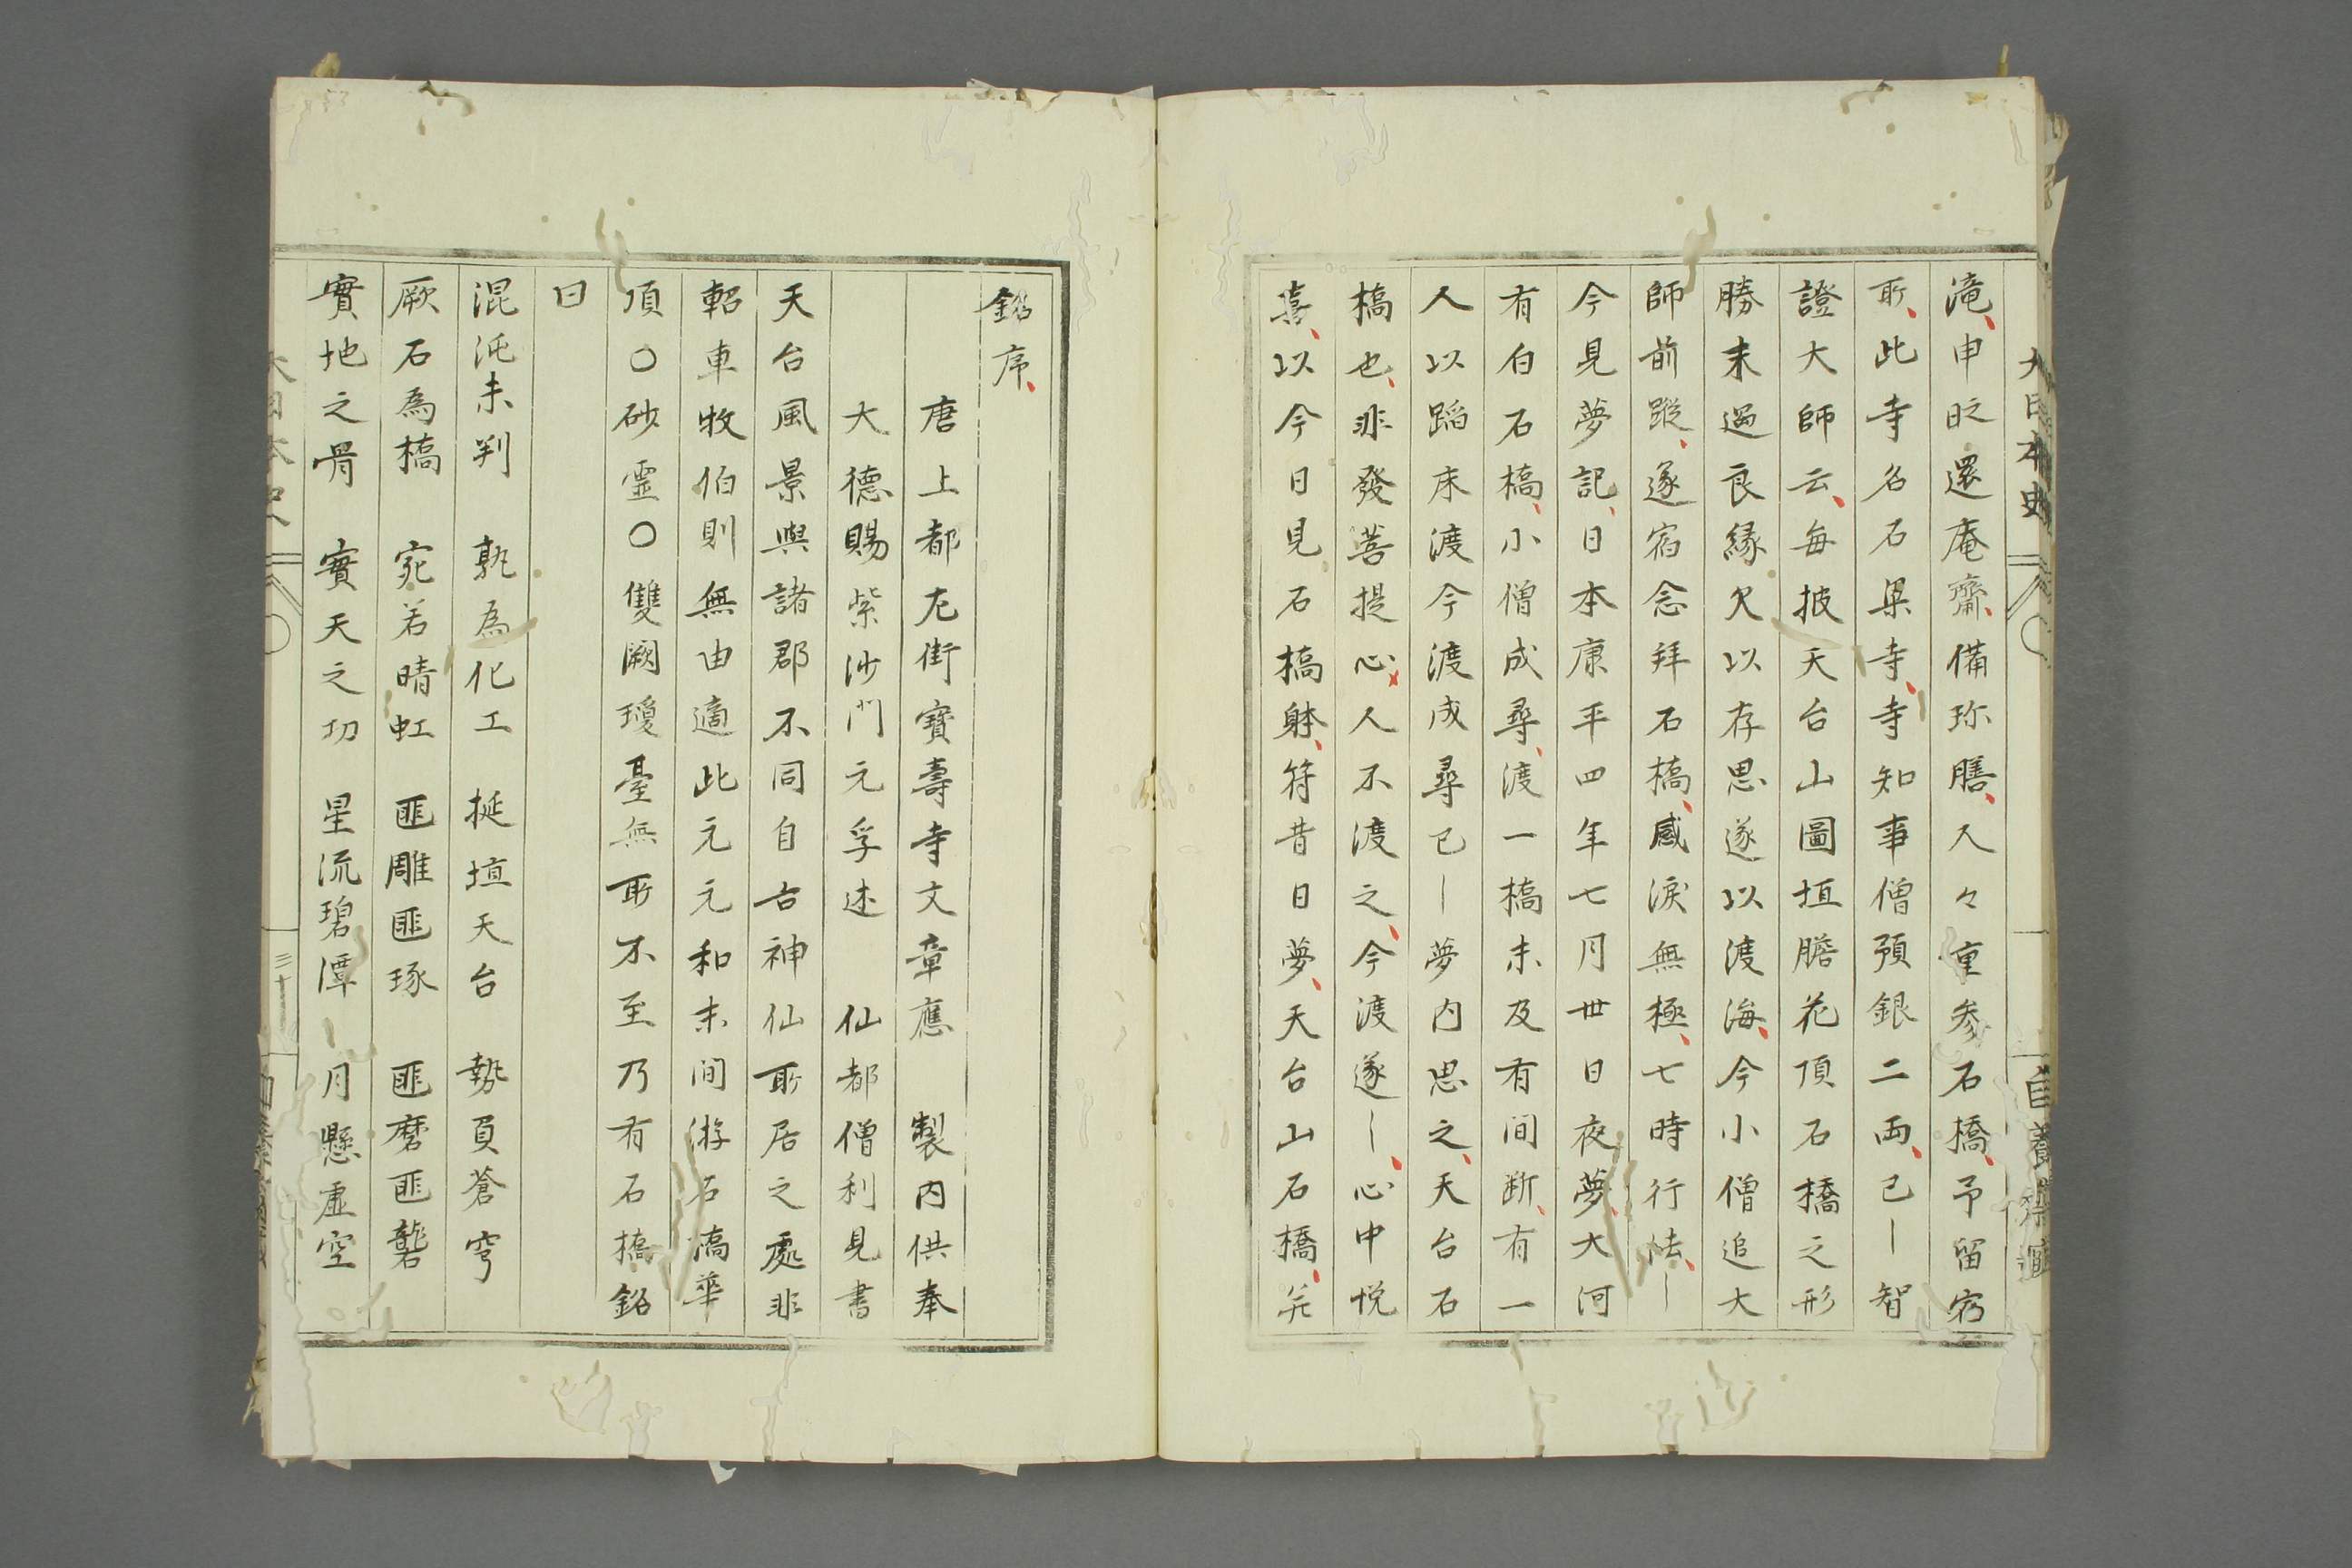 大日本史
滝、申时還庵齋、備珎膳、人々重参石橋、予留宿
所、此寺名石梁寺、寺知事僧預銀二両、已ー智
證大師云、毎披天台山圖恒膽花頂石橋之形
勝未遇良縁久以存思遂以渡海、今小僧追大
師前蹤、遂宿念拜石橋、感淚無極、七時行法、ー
今見夢記、日本康平四年七月卅日夜夢、大河
有白石橋、小僧成尋、渡一橋未及有间断、有一
人以蹈床渡今渡成尋已ー夢内思之、天台石
橋也、非發菩提心、人不渡之、今渡遂ー、心中悦
喜、以今日見石橋躰、符昔日夢、天台山石橋、并
銘序、
唐上都左街寶壽寺文章應　製内供奉
大德賜紫沙門元孚述　仙都僧利見書
天台風景與諸郡不同自古神仙所居之處非
軺車牧伯則無由適此元元和末间游石橋華
頂〇砂靈〇雙闕瓊臺無所不至乃有石橋銘
曰
混沌未判　孰為化工　挻埴天台　勢頁蒼穹
厥石為橋　宛若晴虹　匪雕匪琢　匪磨匪礱
實地之骨　實天之功　星流碧潭　月懸虛空
大日本史
三十